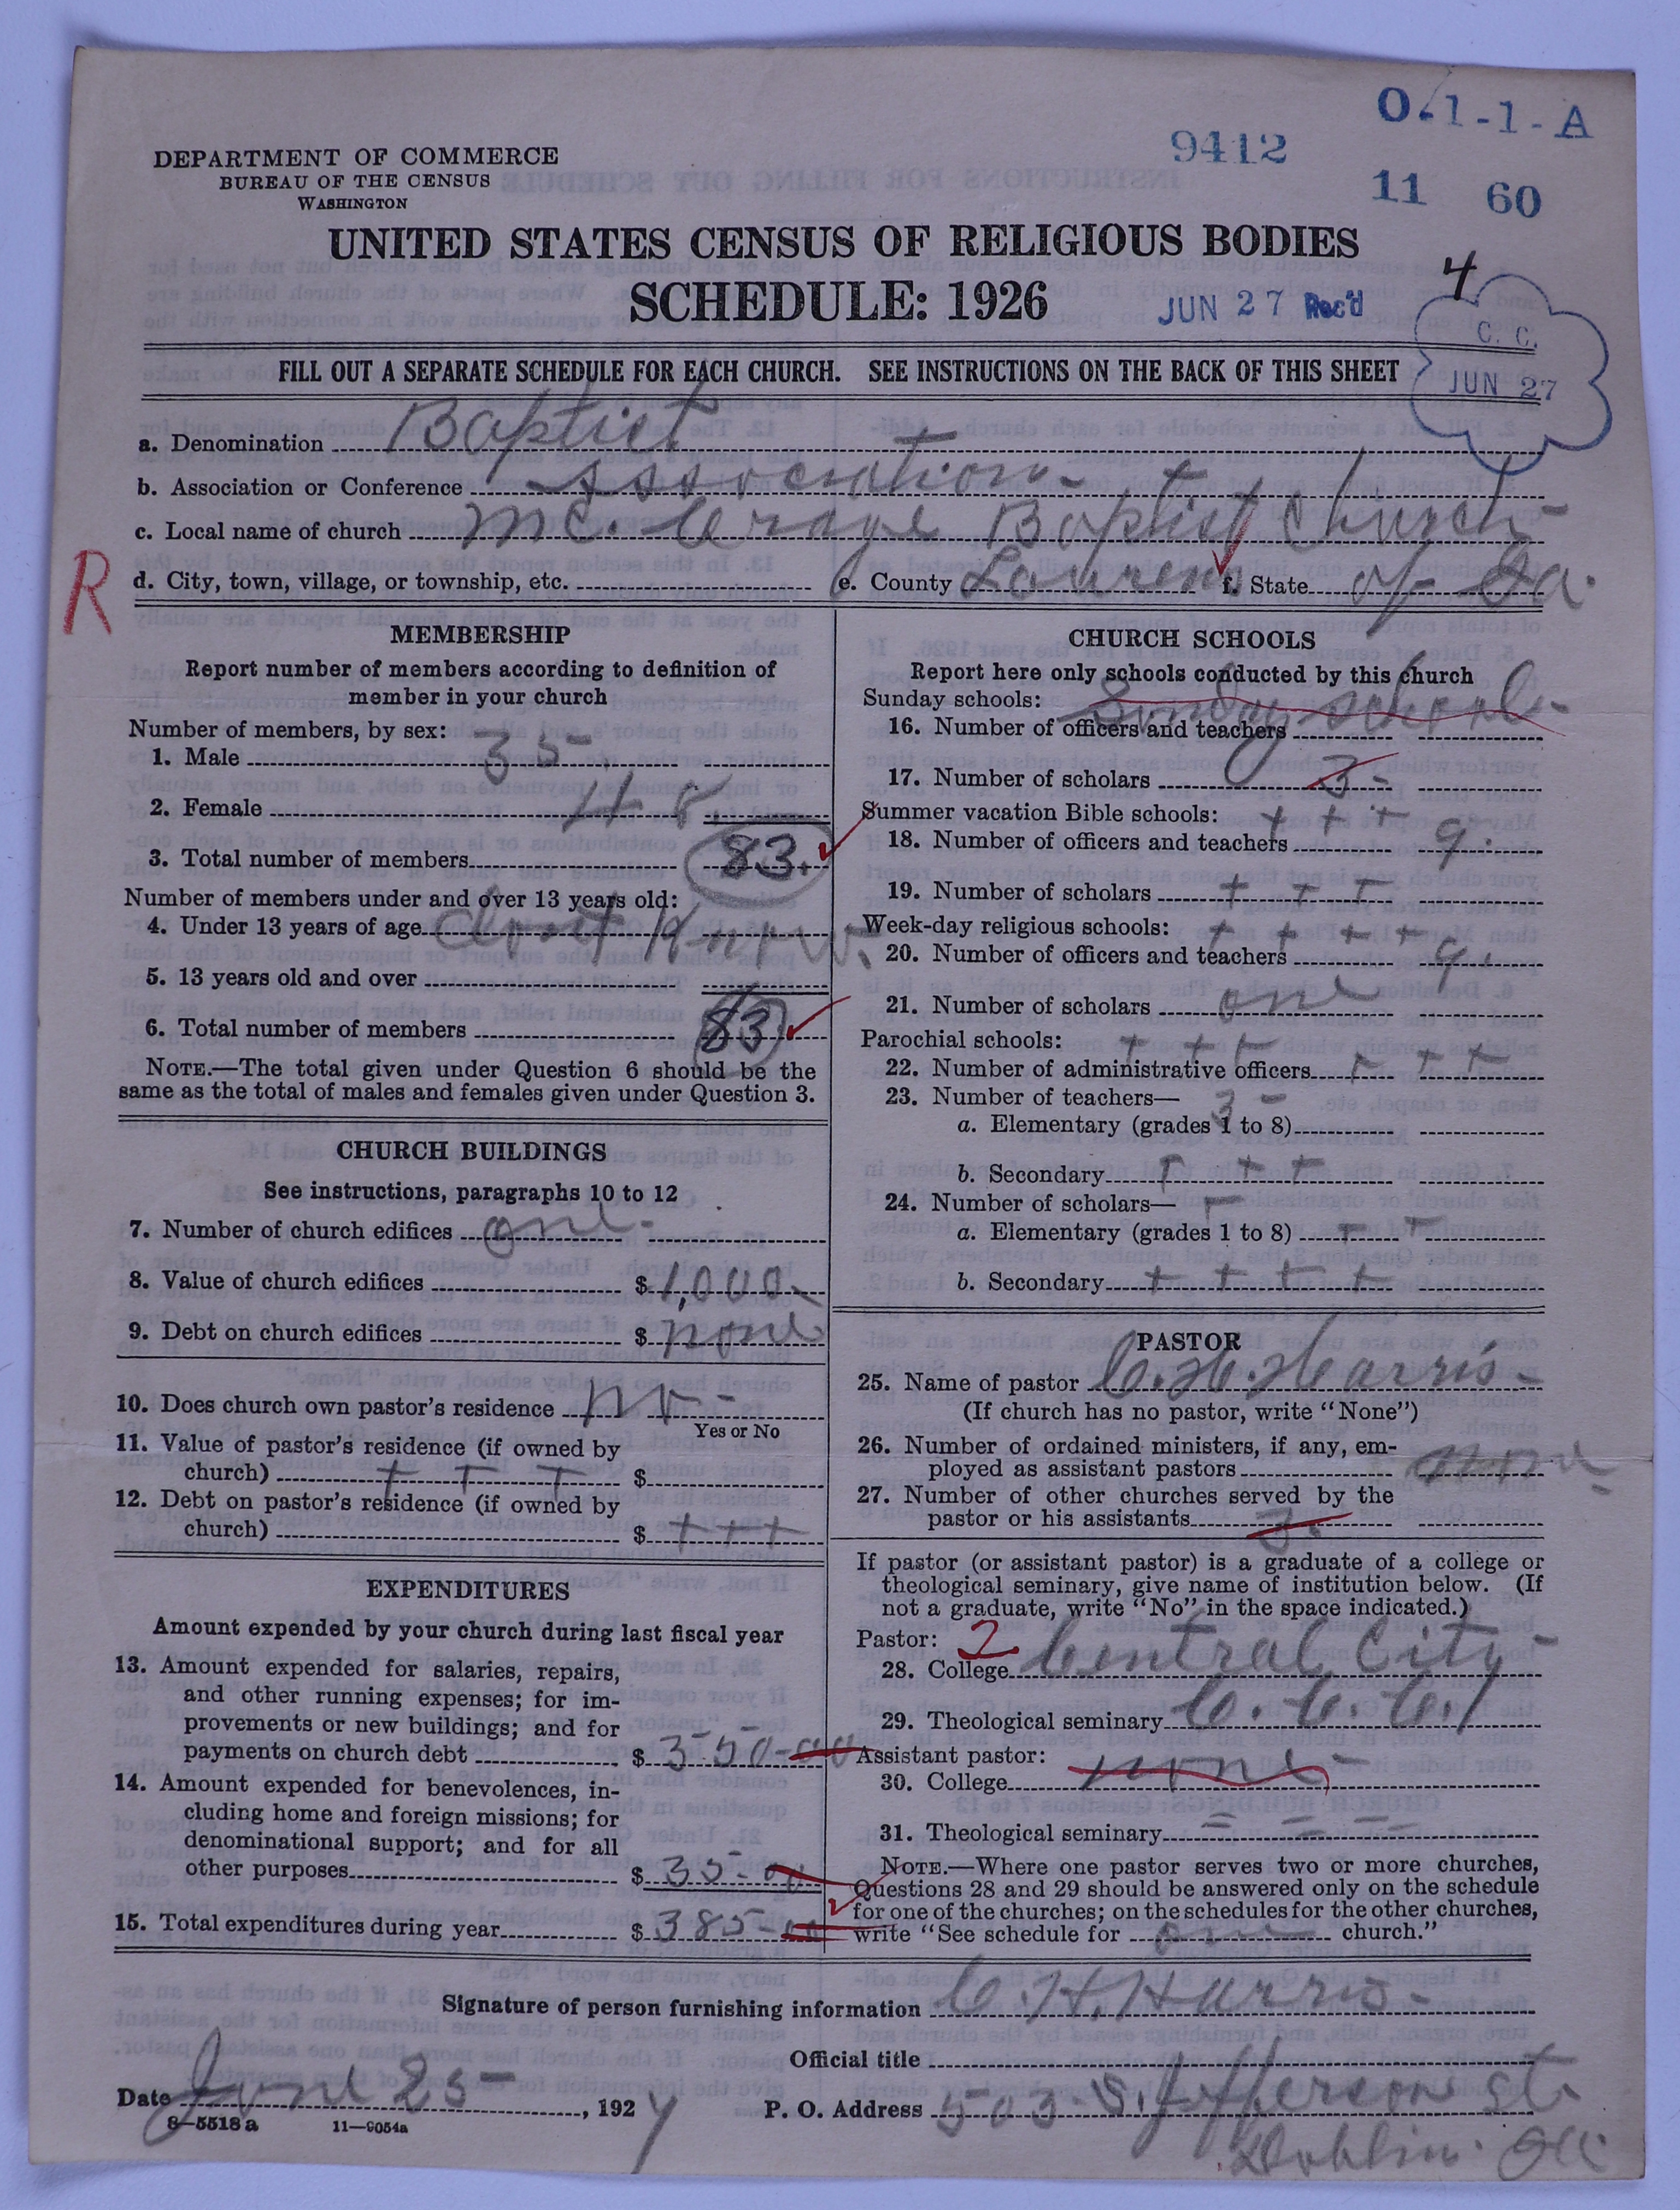 O.1-1-A
9412
11 60
DEPARTMENT OF COMMERCE
BUREAU OF THE CENSUS
WASHINGTON
UNITED STATES CENSUS OF RELIGIOUS BODIES
SCHEDULE: 1926
JUN 27 Rec'd
4
C. C.
JUN 27
FILL OUT A SEPARATE SCHEDULE FOR EACH CHURCH. SEE INSTRUCTIONS ON THE BACK OF THIS SHEET
a. Denomination Baptist
b. Association or Conference Association
c. Local name of church Mc. Baptist Church
R
d. City, town, village, or township, etc. e. County Laurens f. State of Ga.
MEMBERSHIP
Report number of members according to definition of
member in your church
Number of members, by sex:
1. Male 35
2. Female 48
3. Total number of members 83.
Number of members under and over 13 years old:
4. Under 13 years of age dont Know.
5. 13 years old and over
6. Total number of members 83
NOTE.—The total given under Question 6 should be the
same as the total of males and females given under Question 3.
CHURCH BUILDINGS
See instructions, paragraphs 10 to 12
7. Number of church edifices one
8. Value of church edifices $ 1,000
9. Debt on church edifices $ none
10. Does church own pastor's residence no
Yes or No
11. Value of pastor's residence (if owned by
church) + + + $
12. Debt on pastor's residence (if owned by
church) $ + + +
EXPENDITURES
Amount expended by your church during last fiscal year
13. Amount expended for salaries, repairs,
and other running expenses; for im-
provements or new buildings; and for
payments on church debt $ 350-00
14. Amount expended for benevolences, in-
cluding home and foreign missions; for
denominational support; and for all
other purposes $ 35-00
15. Total expenditures during year $ 385-00
CHURCH SCHOOLS
Report here only schools conducted by this church
Sunday schools: Sunday school
16. Number of officers and teachers
17. Number of scholars 3-
Summer vacation Bible schools: + + +
18. Number of officers and teachers 9.
19. Number of scholars + + +
Week-day religious schools: + + + +
20. Number of officers and teachers 9.
21. Number of scholars one
Parochial schools: + + +
22. Number of administrative officers + + +
23. Number of teachers— 3-
a. Elementary (grades 1 to 8)
b. Secondary + + +
24. Number of scholars— +
a. Elementary (grades 1 to 8) + +
b. Secondary + + + +
PASTOR
25. Name of pastor C. H. Harris-
(If church has no pastor, write "None")
26. Number of ordained ministers, if any, em-
ployed as assistant pastors none
27. Number of other churches served by the
pastor or his assistants 3.
If pastor (or assistant pastor) is a graduate of a college or
theological seminary, give name of institution below. (If
not a graduate, write "No" in the space indicated.)
Pastor: 2
28. College Central City-
29. Theological seminary C. C. C.
Assistant pastor:
30. College none-
31. Theological seminary = = =
NOTE.—Where one pastor serves two or more churches,
Questions 28 and 29 should be answered only on the schedule
for one of the churches; on the schedules for the other churches,
write "See schedule for one church."
Signature of person furnishing information C. H. Harris-
Official title
Date June 25-, 1927 P. O. Address 503 S. Jefferson st.
Dublin. Ga
8—5518 a 11—9054a